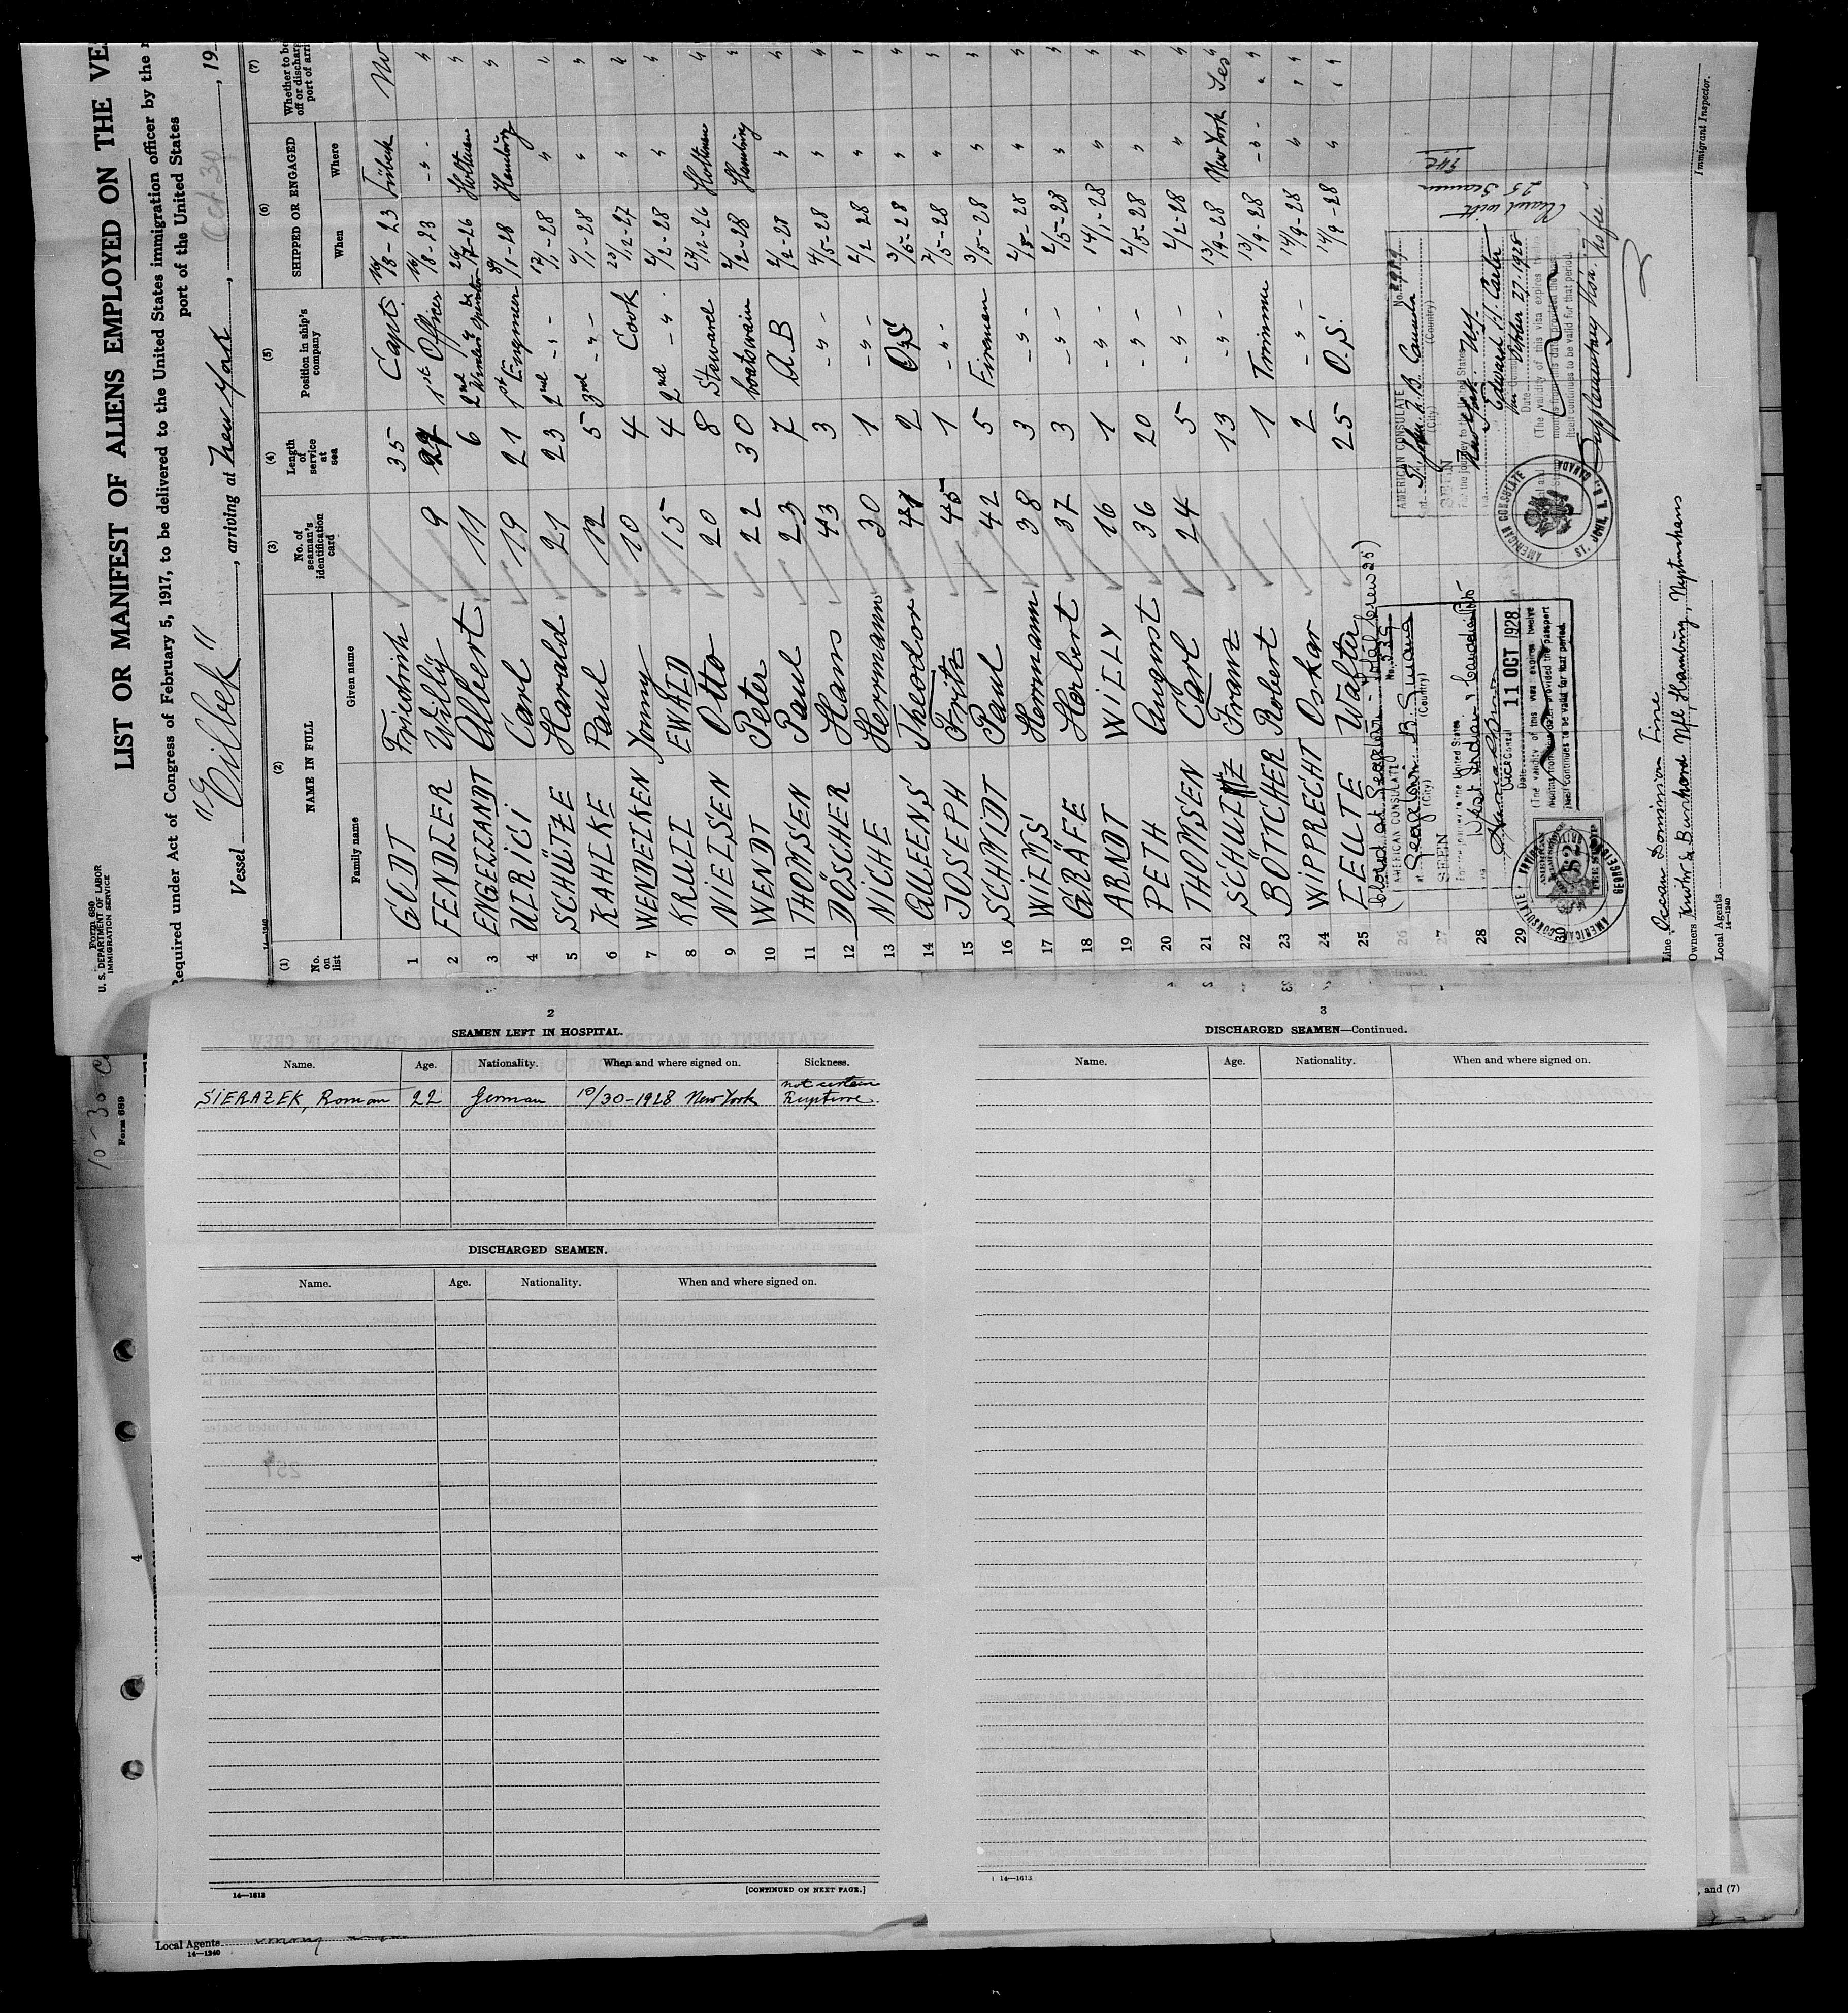 Form 680
U. S. DEPARTMENT OF LABOR
IMMIGRATION SERVICE
LIST OR MANIFEST OF ALIENS EMPLOYED ON THE VE
Required under Act of Congress of February 5, 1917, to be delivered to the United States immigration officer by the
port of the United States
Vessel "Eilbek", arriving at New York, Oct 30, 19
14—1240
(1) (2) (3) (4) (5) (6) (7)
No. on list NAME IN FULL No. of seaman's identification card Length of service at sea Position in ship's company SHIPPED OR ENGAGED Whether to be off or discharg port of arri
Family name Given name When Where
1 GÖDT Friedrich 35 Capt. 18-23 Lübeck No
2 FENDLER Willy 9 1st Officer 18-23 -"- "
3 ENGELLANDT Albert 11 6 2nd Holtenau "
4 ULRICI Carl 19 21 1st Engineer 8/1-28 Hamburg "
5 SCHÜTZE Harald 21 23 2nd -"- 12/1-28 " "
6 KAHLKE Paul 12 5 3rd -"- 4/1-28 " "
7 WENDELKEN Jonny 10 4 Cook 23/12-27 " "
8 KRULL EWALD 15 4 2nd -"- 2/2-28 " "
9 NIELSEN Otto 20 8 Steward 27/12-26 Holtenau "
10 WENDT Peter 22 30 boatswain 2/2-28 Hamburg "
11 THOMSEN Paul 23 7 A.B 2/2-28 " "
12 DÖSCHER Hans 43 3 -"- 4/5-28 " "
13 NICHE Herrmann 30 1 -"- 2/2 28 " "
14 QULEENS Theodor 2 O.S 3/5-28 " "
15 JOSEPH Fritz 45 1 -"- 2/5-28 " "
16 SCHMIDT Paul 42 5 Fireman 3/5-28 " "
17 WIEMS Hermann 38 3 -"- 2/5-28 " "
18 GRÄFE Herbert 37 3 -"- 2/5-28 " "
19 ARNDT WILLY 16 1 -"- 14/1-28 " "
20 PETH August 36 20 -"- 2/5-28 " "
21 THOMSEN Carl 24 5 -"- 2/2-28 " "
22 SCHULTZ Franz 13 -"- 13/9-28 New York Yes
23 BÖTTCHER Robert 1 Trimmer 13/9-28 -"- "
24 WIPPRECHT Oskar 2 -"- 14/9-28 " "
25 LEUTE Walter 25 O.S. 14/9-28 " "
26
27
28
29
30
(Closed at Georgetown Total crew 25)
AMERICAN CONSULATE No. 539
at Georgetown B. Guiana
(City) (Country)
SEEN
For the journey to the United States
Vice Consul
Date 11 OCT 1928
(The validity of this visa expires twelve months from this date, provided the passport itself continues to be valid for that period.
AMERICAN FEE STAMP $2
AMERICAN CONSULATE GEORGETOWN
AMERICAN CONSULATE No. 2989
at St. John N.B. Canada
(City) (Country)
SEEN
For the journey to the United States
New York, N.Y.
Edward H. Carter
Vice Consul
October 27. 1928
Date
(The validity of this visa expires
months from this date, provided the
itself continues to be valid for that period.
AMERICAN CONSULATE ST. JOHN, N.B., CANADA
Supplementary visa. No fee.
Closed with
25 Seamen
Line Ocean Dominion Line
Owners Knöhr & Burchard Nfl. Hamburg, Neptunhaus
Local Agents
14—1240
Immigrant Inspector.
10-30
Form 689
2
SEAMEN LEFT IN HOSPITAL.
Name. Age. Nationality. When and where signed on. Sickness.
SIERAZEK, Roman 22 German 10/30-1928 New York not certain Rupture.
DISCHARGED SEAMEN.
Name. Age. Nationality. When and where signed on.
14—1613
[CONTINUED ON NEXT PAGE.]
3
DISCHARGED SEAMEN—Continued.
Name. Age. Nationality. When and where signed on.
14—1613
4
, and (7)
Local Agents
14—1240